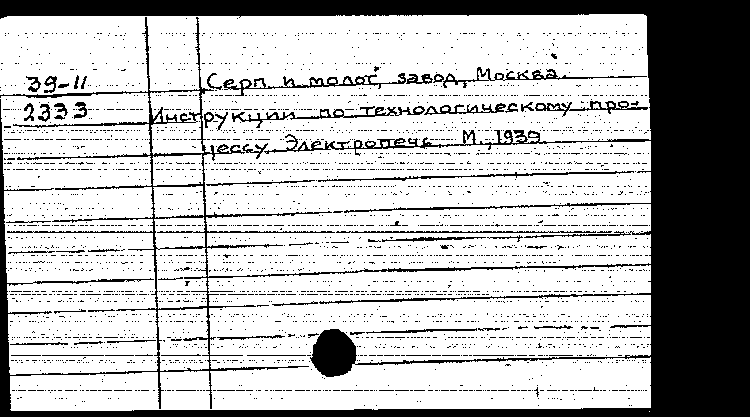 39-11
2333
Серп и молот, завод, Москва.
Инструкции по технологическому про-
цессу. Электропечь. М., 1939